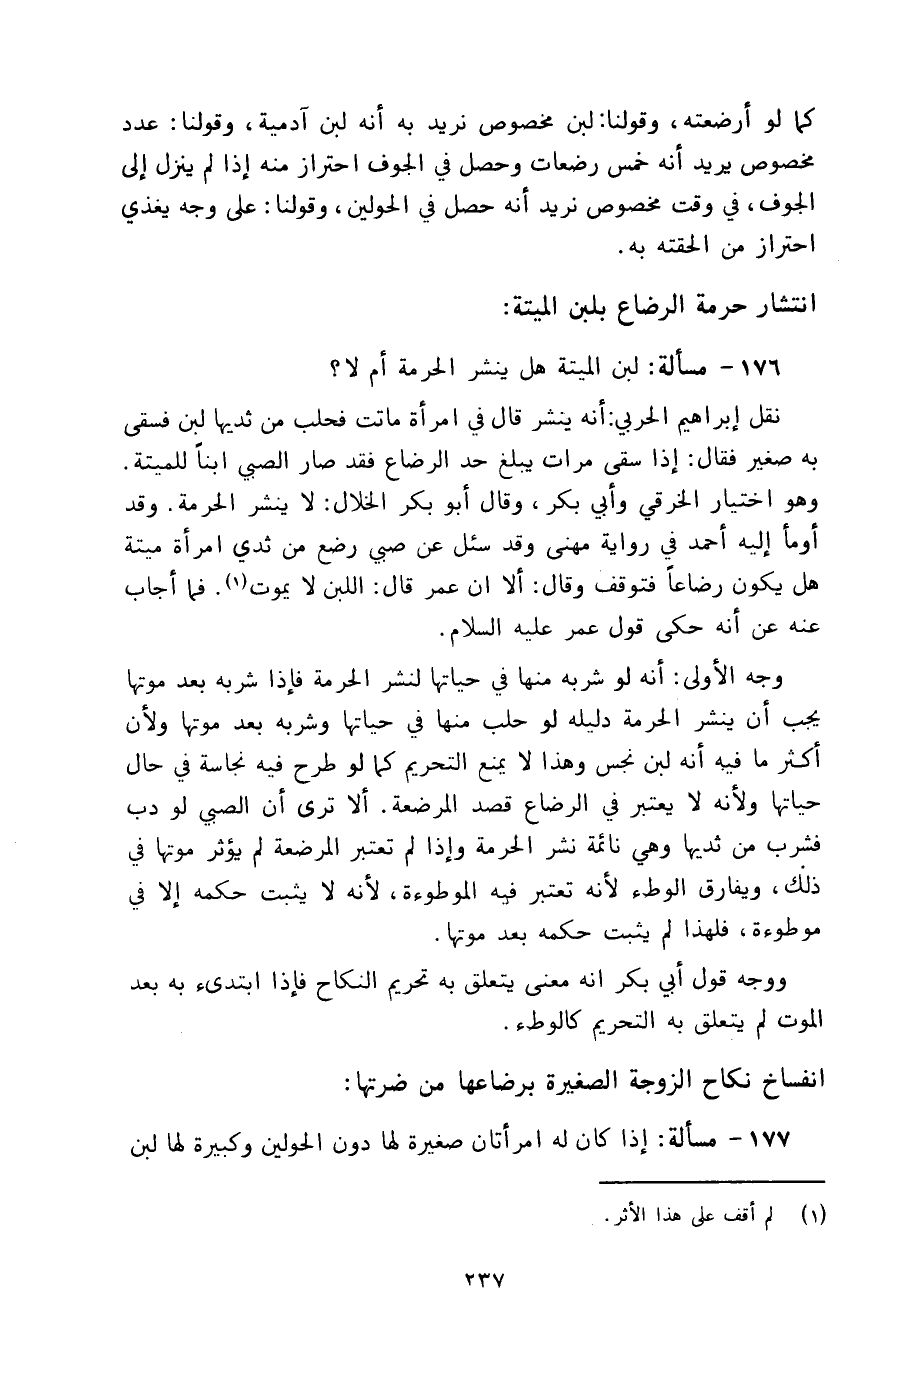 كما لو أرضعته، وقولنا: لبن مخصوص نريد به أنه لبن آدمية، وقولنا: عدد
مخصوص يريد أنه خمس رضعات وحصل في الجوف احتراز منه إذا لم ينزل إلى
الجوف، في وقت مخصوص نريد أنه حصل في الحولين، وقولنا: على وجه يغذي
احتراز من الحقنه به.
انتشار حرمة الرضاع بلبن الميتة:
١٧٦ - مسألة: لبن الميتة هل ينشر الحرمة أم لا؟
نقل إبراهيم الحربي: أنه ينشر قال في امرأة ماتت فحلب من ثديها لبن فسقى
به صغير فقال: إذا سقى مرات يبلغ حد الرضاع فقد صار الصبي ابناً للميتة.
وهو اختيار الخرقي وأبي بكر، وقال أبو بكر الخلال: لا ينشر الحرمة. وقد
أومأ إليه أحمد في رواية مهنى وقد سئل عن صبي رضع من ثدي امرأة ميتة
هل يكون رضاعاً فتوقف وقال: ألا ان عمر قال: اللبن لا يموت(١). فما أجاب
عنه عن أنه حكى قول عمر عليه السلام.
وجه الأولى: أنه لو شربه منها في حياتها لنشر الحرمة فإذا شربه بعد موتها
يجب أن ينشر الحرمة دليله لو حلب منها في حياتها وشربه بعد موتها ولأن
أكثر ما فيه أنه لبن نجس وهذا لا يمنع التحريم كما لو طرح فيه نجاسة في حال
حياتها ولأنه لا يعتبر في الرضاع قصد المرضعة. ألا ترى أن الصبي لو دب
فشرب من ثديها وهي نائمة نشر الحرمة وإذا لم تعتبر المرضعة لم يؤثر موتها في
ذلك، ويفارق الوطء لأنه تعتبر فيه الموطوءة، لأنه لا يثبت حكمه إلا في
موطوءة، فلهذا لم يثبت حكمه بعد موتها.
ووجه قول أبي بكر انه معنى يتعلق به تحريم النكاح فإذا ابتدىء به بعد
الموت لم يتعلق به التحريم كالوطء.
انفساخ نكاح الزوجة الصغيرة برضاعها من ضرتها:
١٧٧ - مسألة: إذا كان له امرأتان صغيرة لها دون الحولين وكبيرة لها لبن
(١) لم أقف على هذا الأثر.
٢٣٧